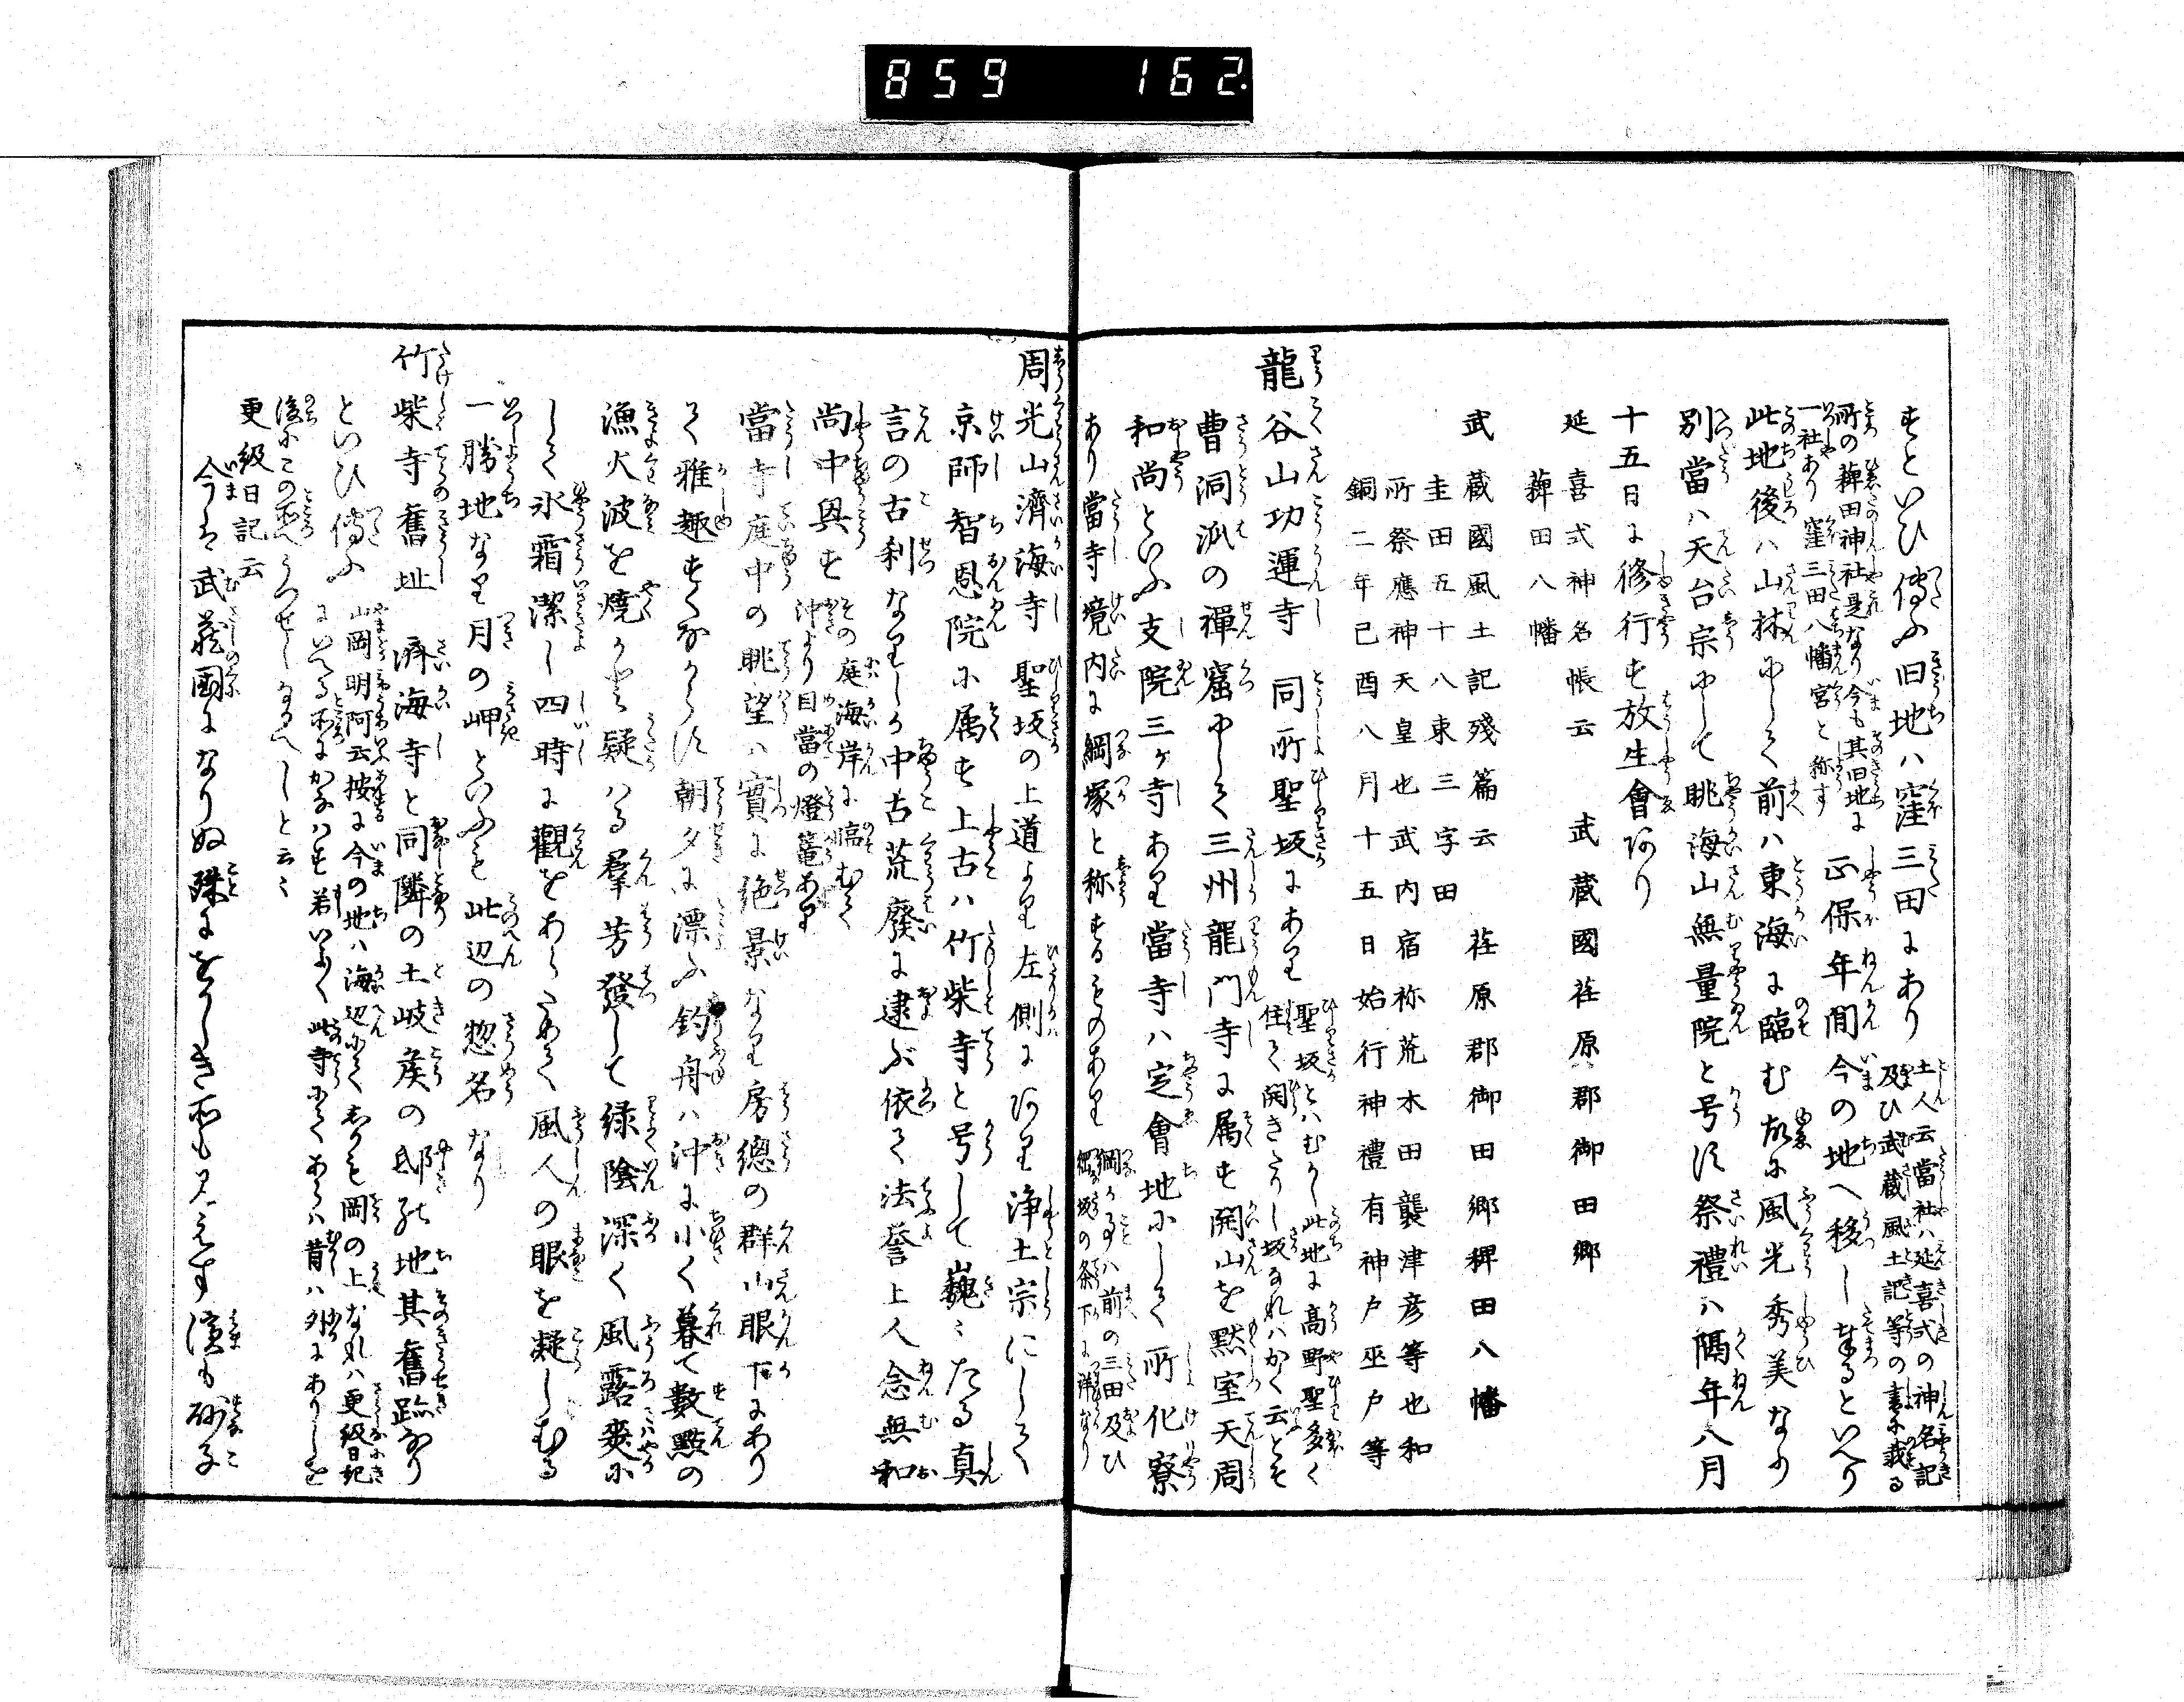 859 162
もといひ傳ふ旧地ハ窪三田にあり 土人云當社ハ延喜式の神名記
及ひ武蔵風土記等の書に載る
所の薭田神社是なり今も其旧地に
一社あり窪三田八幡宮と称す 正保年間今の地へ移し奉るといへり
此地後ハ山林にして前ハ東海に臨む故に風光秀美なり
別當ハ天台宗にして眺海山無量院と号す祭禮ハ隔年八月
十五日に修行す放生會あり
延喜式神名帳云 武蔵國荏原郡御田郷
薭田八幡
武蔵國風土記殘篇云 荏原郡御田郷稗田八幡
圭田五十八束三字田
所祭應神天皇也武内宿祢荒木田襲津彦等也和
銅二年己酉八月十五日始行神禮有神戸巫戸等
龍谷山功運寺 同所聖坂にあり 聖坂とハむかし此地に高野聖多く
住て開きたりし坂なれハかく云とそ
曹洞派の禪窟にして三州龍門寺に属す開山を黙室天周
和尚といふ支院三ヶ寺あり當寺ハ定會地にして所化寮
あり當寺境内に綱塚と称するものあり 綱か事ハ前の三田及ひ
綱坂の条下に詳なり
周光山濟海寺 聖坂の上道より左側にあり浄土宗にして
京師智恩院に属す上古ハ竹柴寺と号して巍々たる真
言の古刹なりしか中古荒廢に逮ぶ依て法誉上人念無和
尚中興す その庭海岸に臨むて
沖より目當の燈篭あり
當寺庭中の眺望ハ實に絶景なり房總の群山眼下にあり
て雅趣すくなからす朝夕に漂ふ釣舟ハ沖に小く暮て數點の
漁火波を焼かと疑ハる羣芳發して緑陰深く風露爽に
して氷霜潔し四時に觀をあらためて風人の眼を凝しむる
一勝地なり月の岬といふも此辺の惣名なり
竹柴寺舊址 済海寺と同隣の土岐矦の邸の地其舊跡なり
といひ傳ふ 山岡明阿云按に今の地ハ海辺にてしかも岡の上なれハ更級日記
にいへる所にかなハす若いよ〱此寺にてあらハ昔ハ外にありしを
後にこの所へうつせしなるへしと云々
更級日記云
今は武蔵國になりぬ殊にをかしき所も見えす濱も砂子